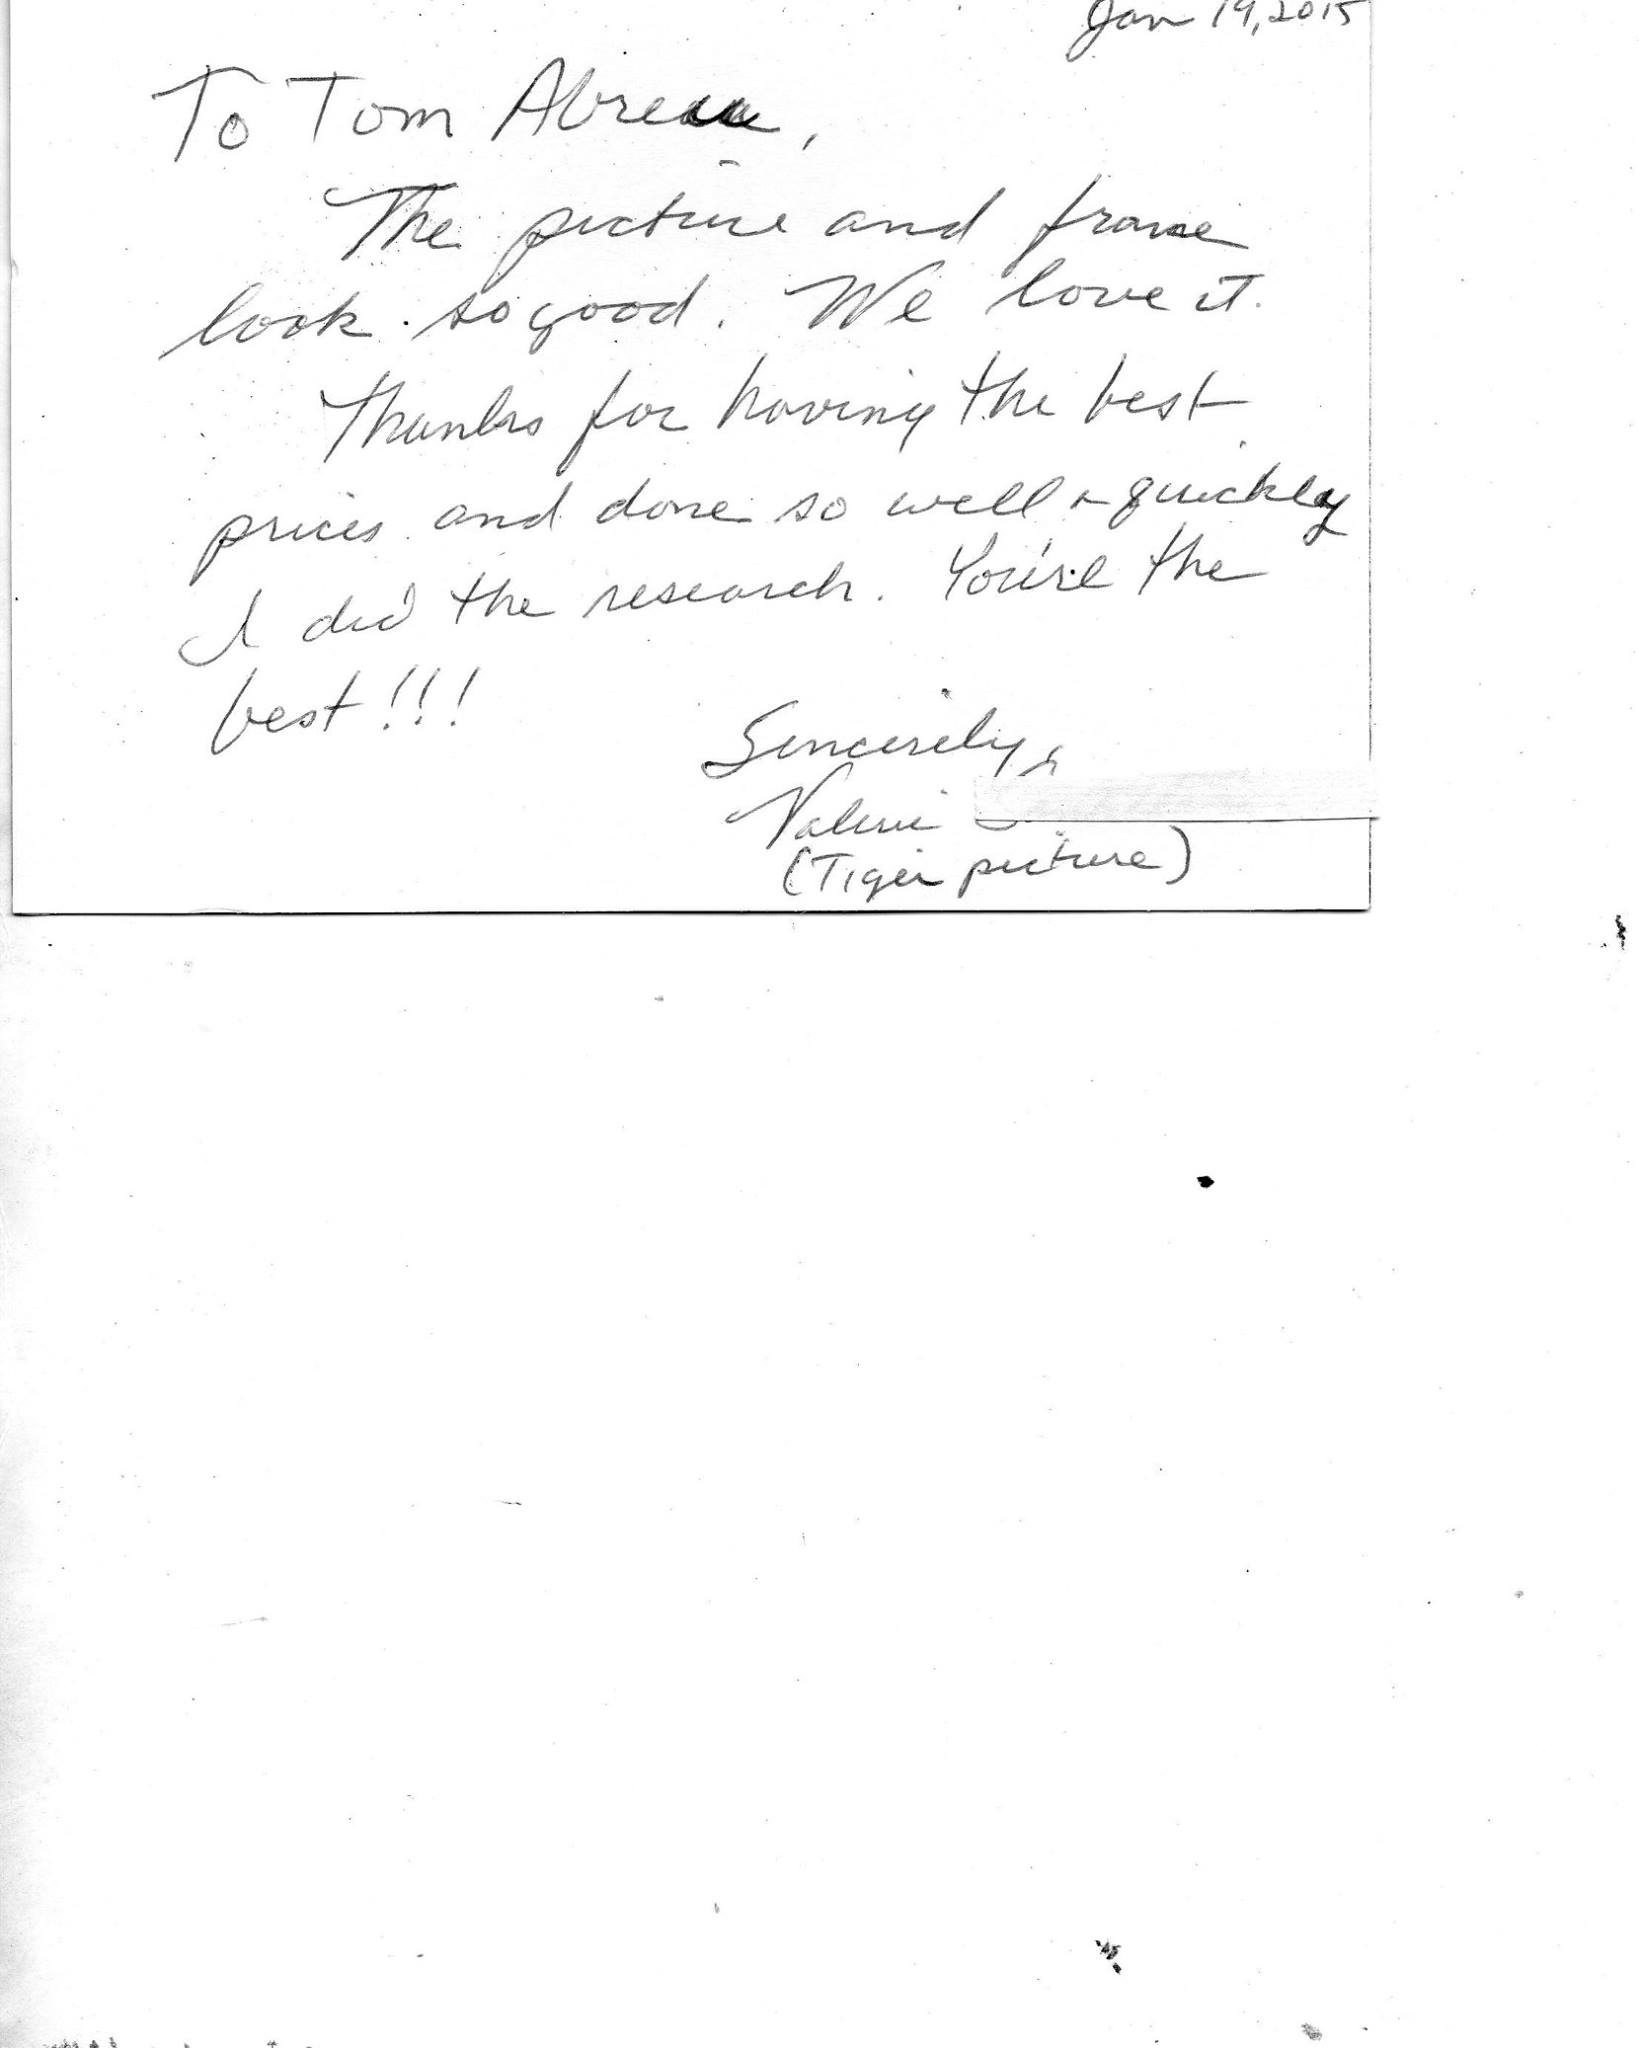 Jan 19, 2015
To Tom Abreu,
The picture and frame
look so good. We love it.
Thanks for having the best
prices and done so well & quickly
I did the research. You're the
best!!!
Sincerely,
Valerie
(Tiger picture)